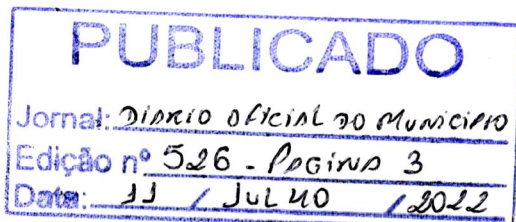 PUBLICADO
Jornal: DIARIO OFICIAL DO MUNICIPIO
Edição nº 526 - PAGINA 3
Data: 11 / JULHO / 2022